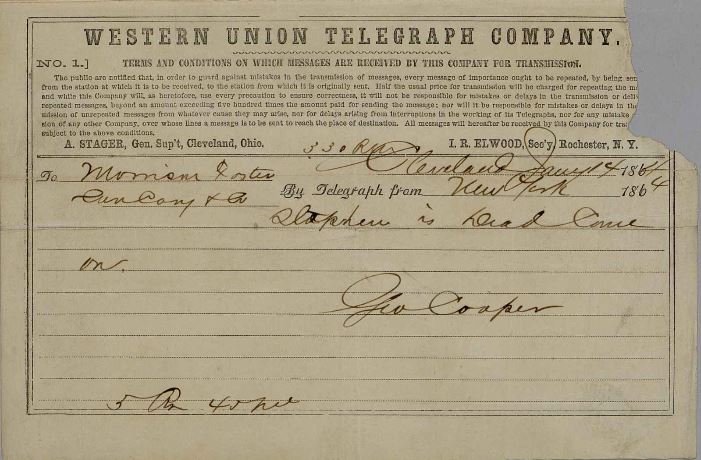 WESTERN UNION TELEGRAPH COMPANY.
NO. 1.] TERMS AND CONDITIONS ON WHICH MESSAGES ARE RECEIVED BY THIS COMPANY FOR TRANSMISSION.
The public are notified that, in order to guard against mistakes in the transmission of messages, every message of importance ought to be repeated, by being
from the station at which it is to be received, to the station from which it is originally sent. Half the usual price for transmission will be charged for repeating the
and while this Company will, as heretofore, use every precaution to ensure correctness, it will not be responsible for mistakes or delays in the transmission or
repeated messages, beyond an amount exceeding five hundred times the amount paid for sending the message; nor will it be responsible for mistakes or delays in the
mission of unrepeated messages from whatever cause they may arise, nor for delays arising from interruptions in the working of its Telegraphs, nor for any mistake
sion of any other Company, over whose lines a message is to be sent to reach the place of destination. All messages will hereafter be received by this Company for
subject to the above conditions.
A. STAGER, Gen. Sup't, Cleveland, Ohio. I. R. ELWOOD, Sec'y, Rochester, N. Y.
330 Cleveland Jany 14 1864
To Morrison Foster
By Telegraph from New York 1864
Stephen is Dead Come
on.
Geo Cooper
5 40